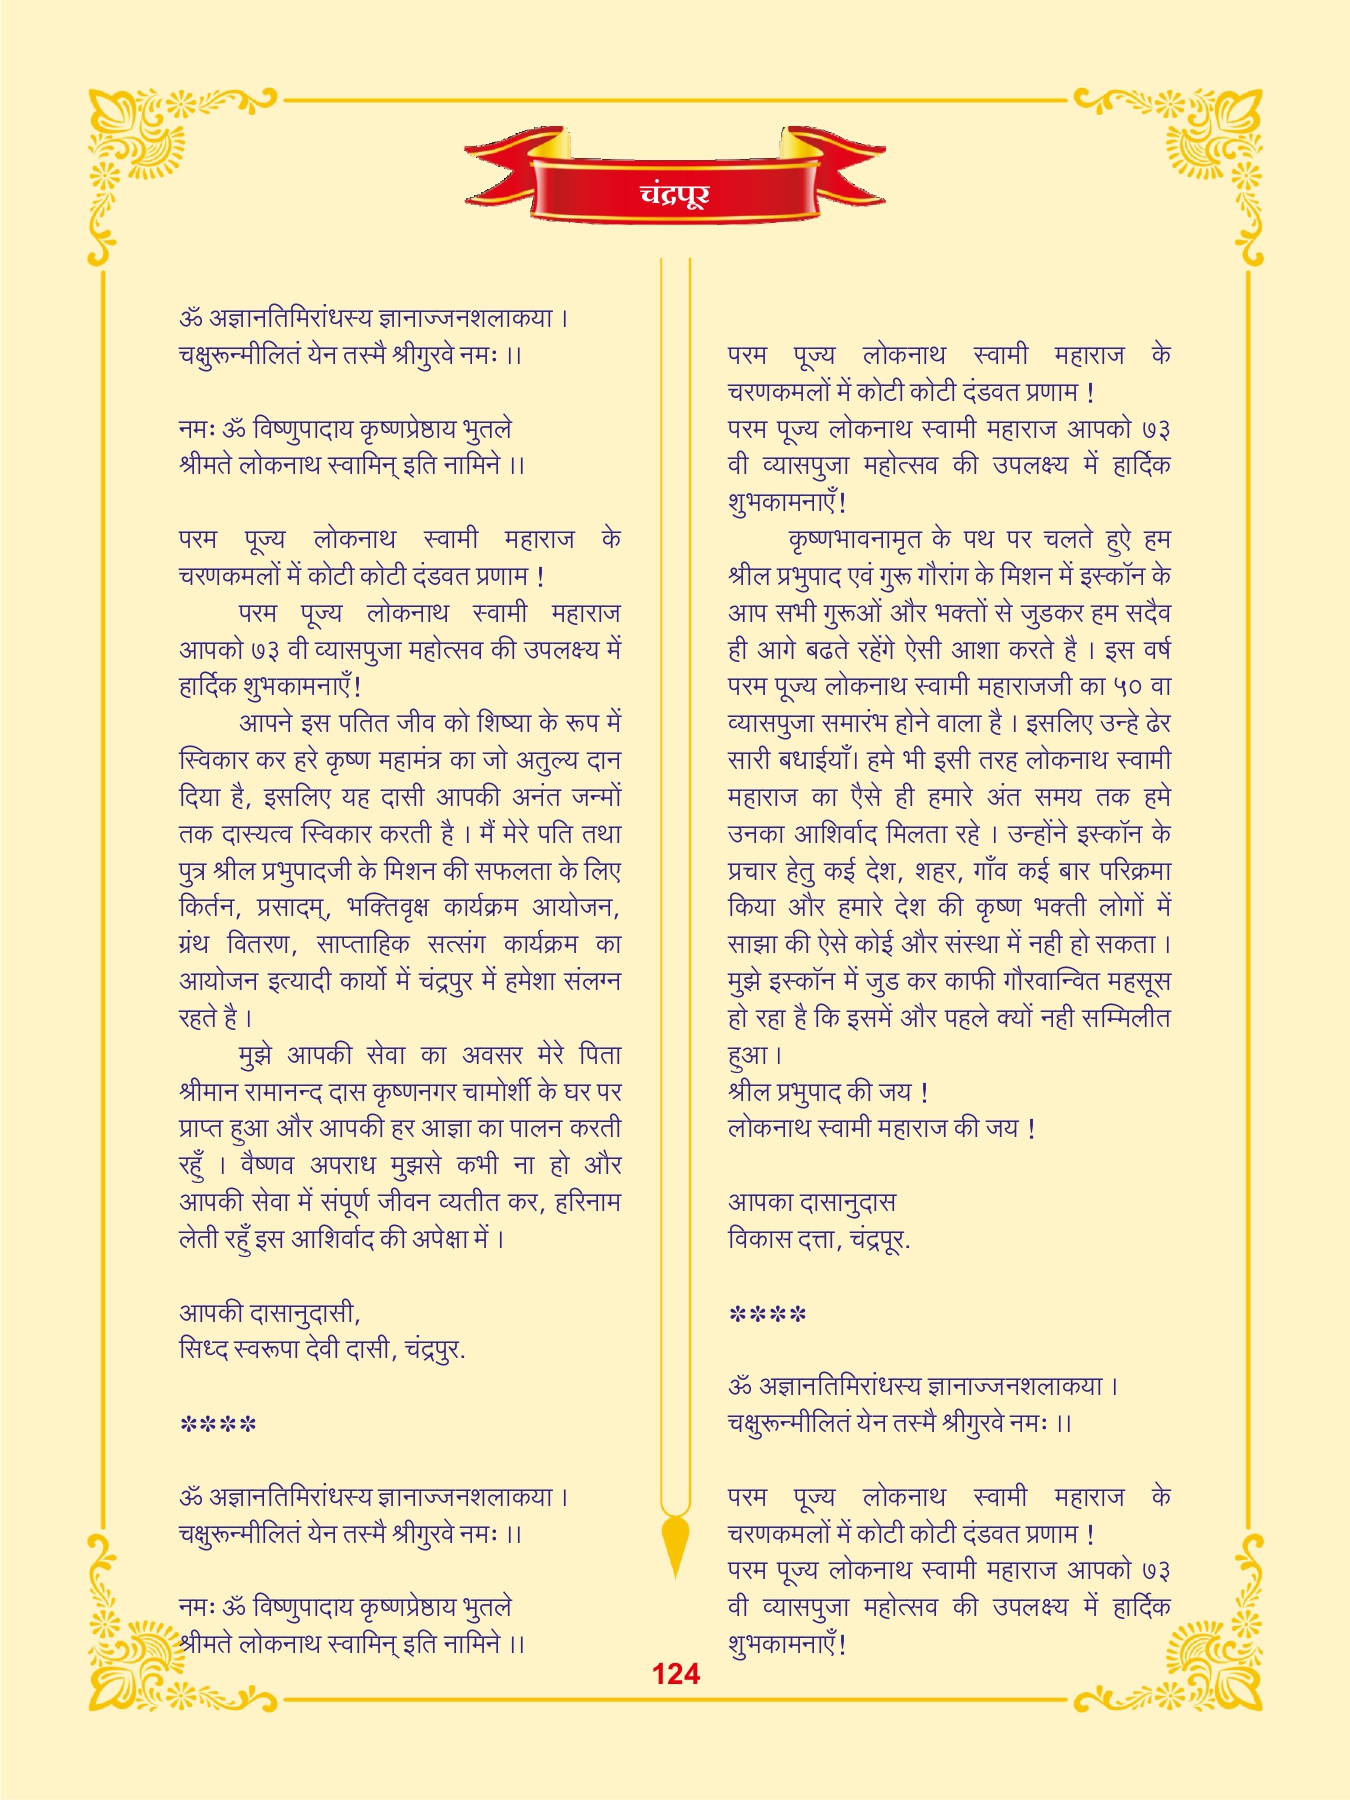 चंद्रपूर
ॐ अज्ञानतिमिरांधस्य ज्ञानाज्जनशलाकया ।
चक्षुरून्मीलितं येन तस्मै श्रीगुरवे नमः ।।
नमः ॐ विष्णुपादाय कृष्णप्रेष्ठाय भुतले
श्रीमते लोकनाथ स्वामिन् इति नामिने ।।
परम पूज्य लोकनाथ स्वामी महाराज के
चरणकमलों में कोटी कोटी दंडवत प्रणाम !
परम पूज्य लोकनाथ स्वामी महाराज
आपको ७३ वी व्यासपुजा महोत्सव की उपलक्ष्य में
हार्दिक शुभकामनाएँ!
आपने इस पतित जीव को शिष्या के रूप में
स्विकार कर हरे कृष्ण महामंत्र का जो अतुल्य दान
दिया है, इसलिए यह दासी आपकी अनंत जन्मों
तक दास्यत्व स्विकार करती है । मैं मेरे पति तथा
पुत्र श्रील प्रभुपादजी के मिशन की सफलता के लिए
किर्तन, प्रसादम्, भक्तिवृक्ष कार्यक्रम आयोजन,
ग्रंथ वितरण, साप्ताहिक सत्संग कार्यक्रम का
आयोजन इत्यादी कार्यो में चंद्रपुर में हमेशा संलग्न
रहते है ।
मुझे आपकी सेवा का अवसर मेरे पिता
श्रीमान रामानन्द दास कृष्णनगर चामोर्शी के घर पर
प्राप्त हुआ और आपकी हर आज्ञा का पालन करती
रहुँ । वैष्णव अपराध मुझसे कभी ना हो और
आपकी सेवा में संपूर्ण जीवन व्यतीत कर, हरिनाम
लेती रहुँ इस आशिर्वाद की अपेक्षा में ।
आपकी दासानुदासी,
सिध्द स्वरूपा देवी दासी, चंद्रपुर.
****
ॐ अज्ञानतिमिरांधस्य ज्ञानाज्जनशलाकया ।
चक्षुरून्मीलितं येन तस्मै श्रीगुरवे नमः ।।
नमः ॐ विष्णुपादाय कृष्णप्रेष्ठाय भुतले
श्रीमते लोकनाथ स्वामिन् इति नामिने ।।
परम पूज्य लोकनाथ स्वामी महाराज के
चरणकमलों में कोटी कोटी दंडवत प्रणाम !
परम पूज्य लोकनाथ स्वामी महाराज आपको ७३
वी व्यासपुजा महोत्सव की उपलक्ष्य में हार्दिक
शुभकामनाएँ!
कृष्णभावनामृत के पथ पर चलते हुऐ हम
श्रील प्रभुपाद एवं गुरू गौरांग के मिशन में इस्कॉन के
आप सभी गुरूओं और भक्तों से जुडकर हम सदैव
ही आगे बढते रहेंगे ऐसी आशा करते है । इस वर्ष
परम पूज्य लोकनाथ स्वामी महाराजजी का ५० वा
व्यासपुजा समारंभ होने वाला है । इसलिए उन्हे ढेर
सारी बधाईयाँ। हमे भी इसी तरह लोकनाथ स्वामी
महाराज का एैसे ही हमारे अंत समय तक हमे
उनका आशिर्वाद मिलता रहे । उन्होंने इस्कॉन के
प्रचार हेतु कई देश, शहर, गाँव कई बार परिक्रमा
किया और हमारे देश की कृष्ण भक्ती लोगों में
साझा की ऐसे कोई और संस्था में नही हो सकता ।
मुझे इस्कॉन में जुड कर काफी गौरवान्वित महसूस
हो रहा है कि इसमें और पहले क्यों नही सम्मिलीत
हुआ ।
श्रील प्रभुपाद की जय !
लोकनाथ स्वामी महाराज की जय !
आपका दासानुदास
विकास दत्ता, चंद्रपूर.
****
ॐ अज्ञानतिमिरांधस्य ज्ञानाज्जनशलाकया ।
चक्षुरून्मीलितं येन तस्मै श्रीगुरवे नमः ।।
परम पूज्य लोकनाथ स्वामी महाराज के
चरणकमलों में कोटी कोटी दंडवत प्रणाम !
परम पूज्य लोकनाथ स्वामी महाराज आपको ७३
वी व्यासपुजा महोत्सव की उपलक्ष्य में हार्दिक
शुभकामनाएँ!
124